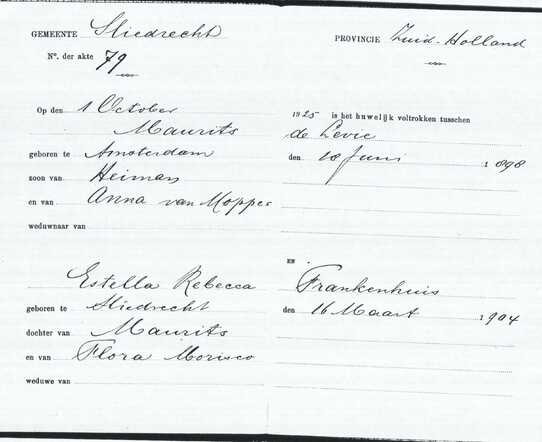 GEMEENTE Sliedrecht PROVINCIE Zuid-Holland
No. der akte 79
Op den 1 October 1925 is het huwelijk voltrokken tusschen
Maurits de Levie
geboren te Amsterdam den 18 Juni 1898
zoon van Heiman
en van Anna van Moppes
weduwnaar van
EN
Estella Rebecca Frankenhuis
geboren te Sliedrecht den 16 Maart 1904
dochter van Maurits
en van Flora Morisco
weduwe van